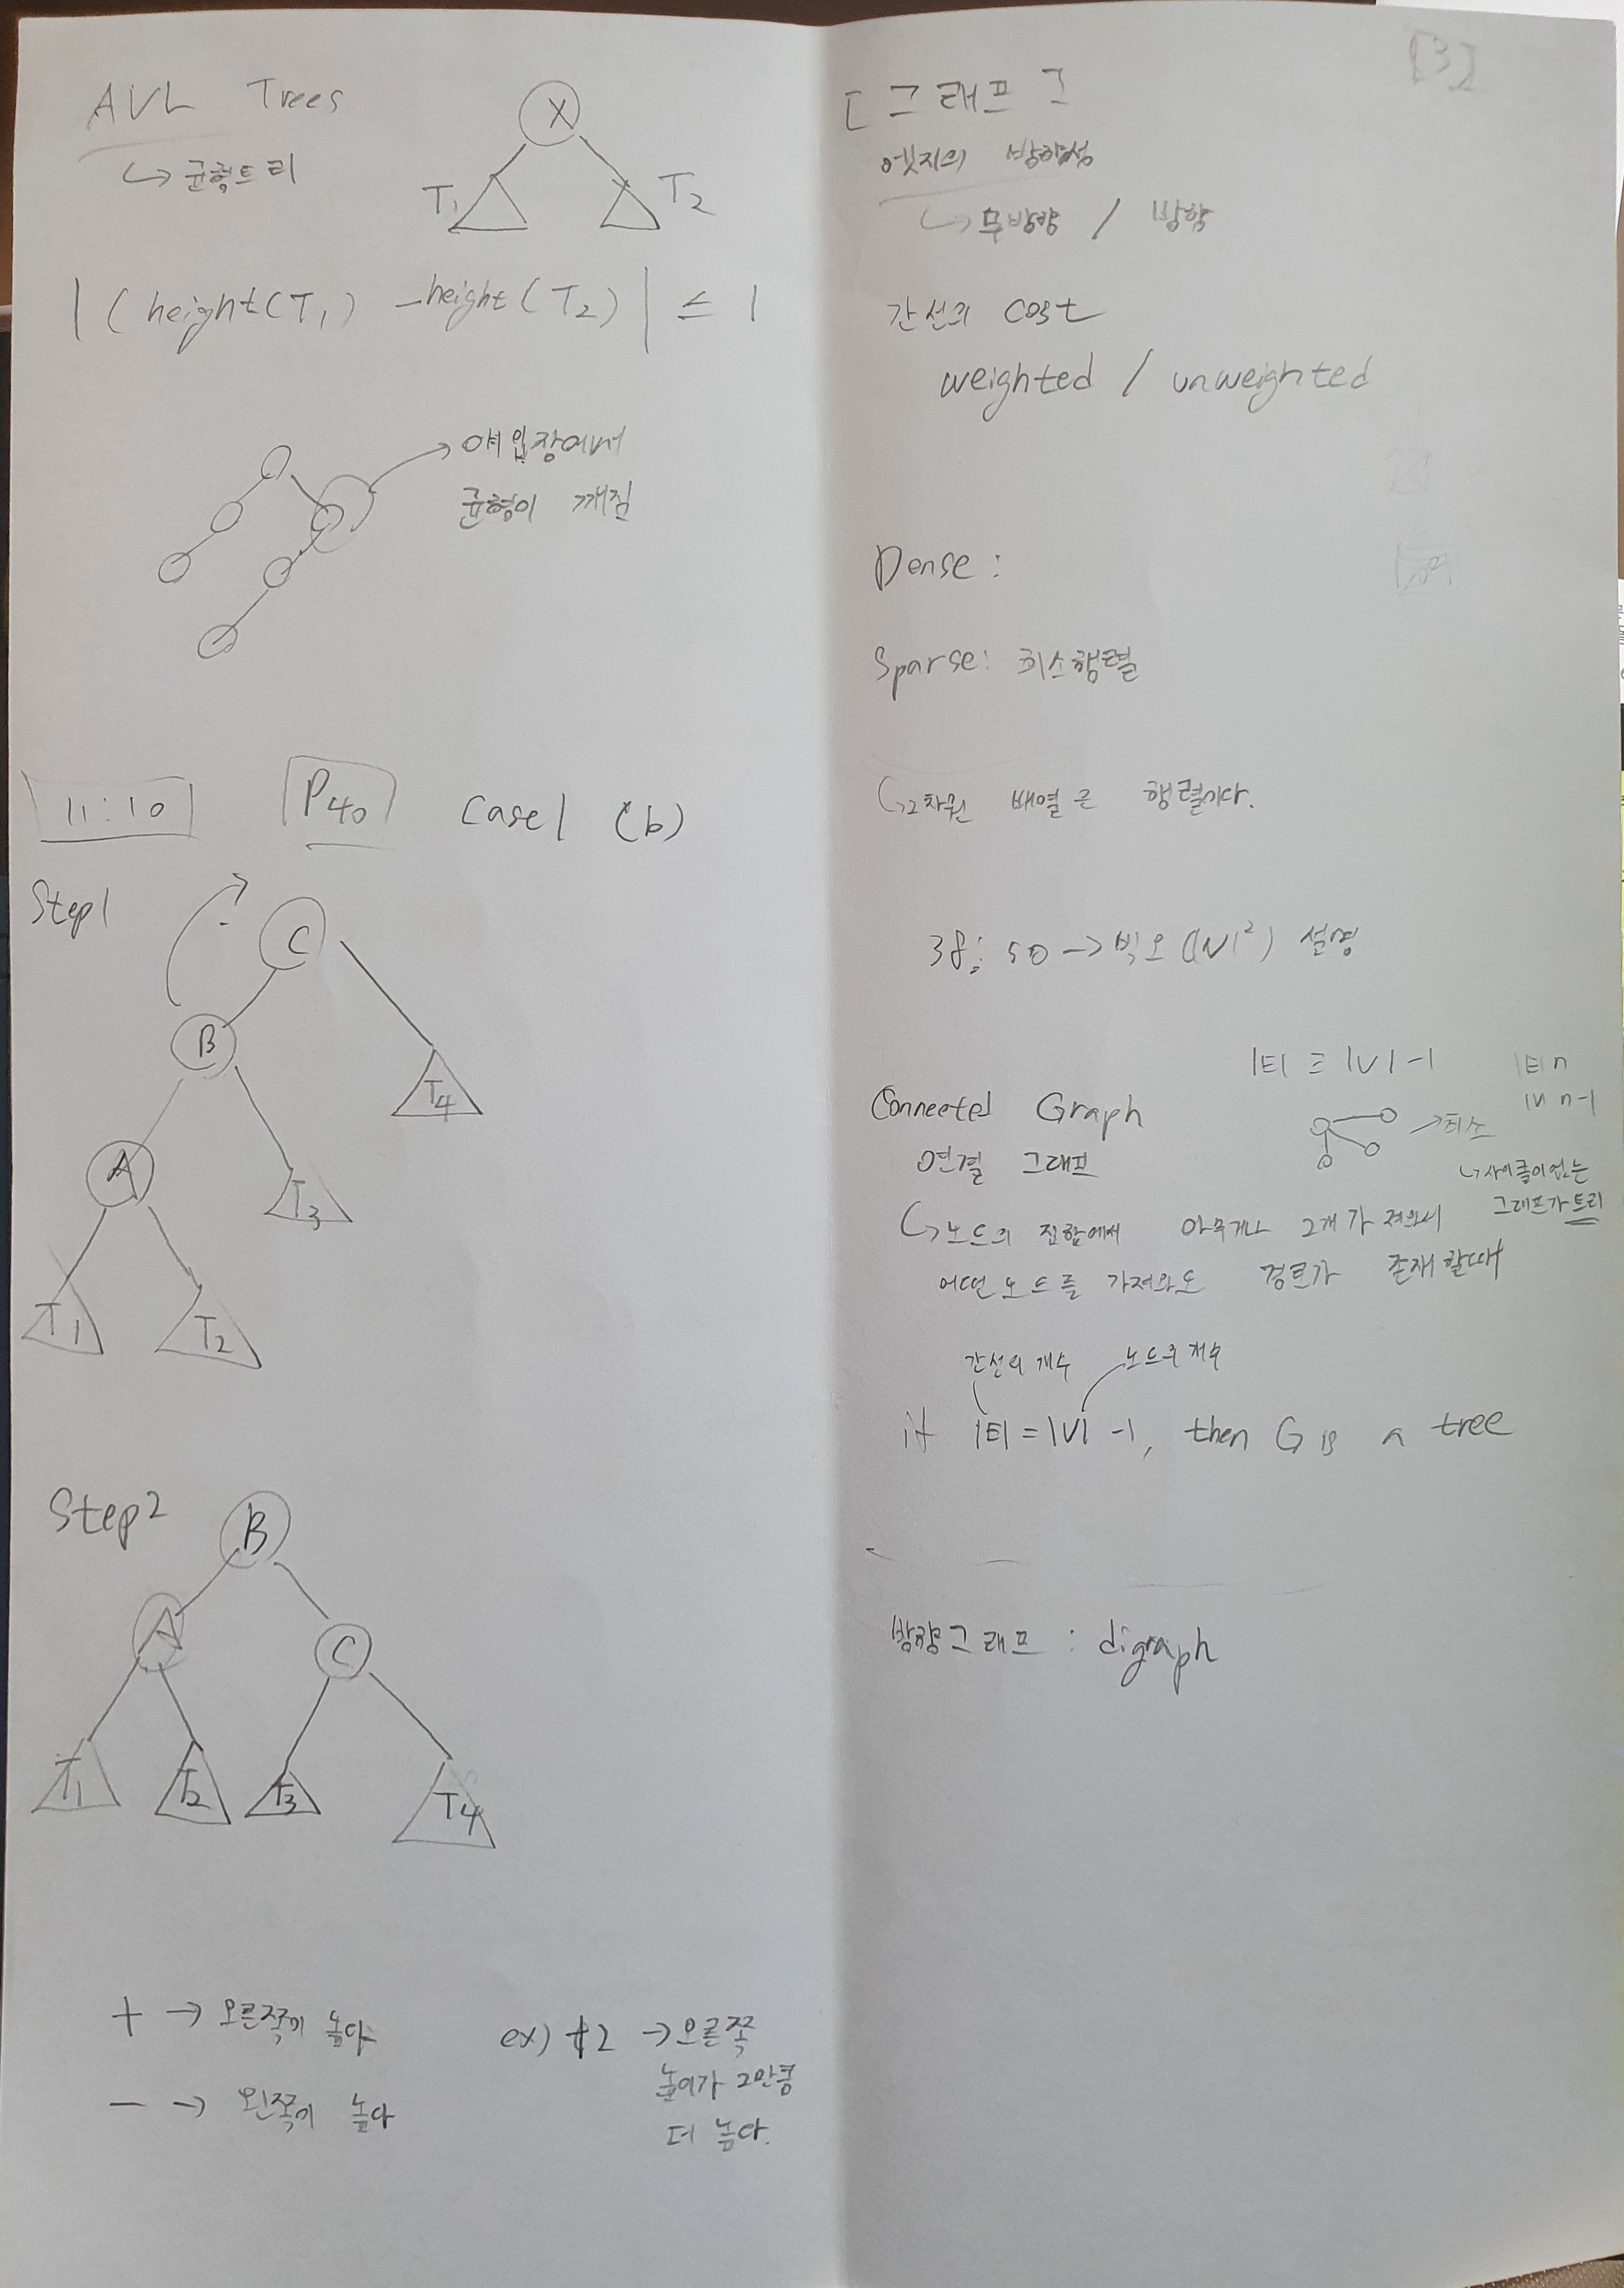 AVL Trees
↳ 균형트리
X
T₁ T₂
| (height(T₁) - height(T₂) | ≤ 1
→ 얘 입장에서
균형이 깨짐
11:10 P40 Case1 (b)
Step1
C
B
T4
A
T3
T1
T2
Step2
B
A
C
T1
T2
T3
T4
+ → 오른쪽이 높다
- → 왼쪽이 높다
ex) +2 → 오른쪽
높이가 2만큼
더 높다.
[3]
[그래프]
엣지의 방향성
↳ 무방향 / 방향
간선의 cost
weighted / unweighted
Dense :
Sparse: 희소행렬
↳ 2차원 배열은 행렬이다.
38:50 → 빅오(|V|²) 설명
|E| ≥ |V| -1
|E| n
|V| n-1
Connected Graph
→ 최소
연결 그래프
↳ 사이클이 없는
그래프가 트리
↳ 노드의 집합에서 아무거나 2개 가져와서
어떤 노드를 가져와도 경로가 존재할때
간선의 개수 노드의 개수
if |E| = |V| -1, then G is a tree
방향그래프 : digraph